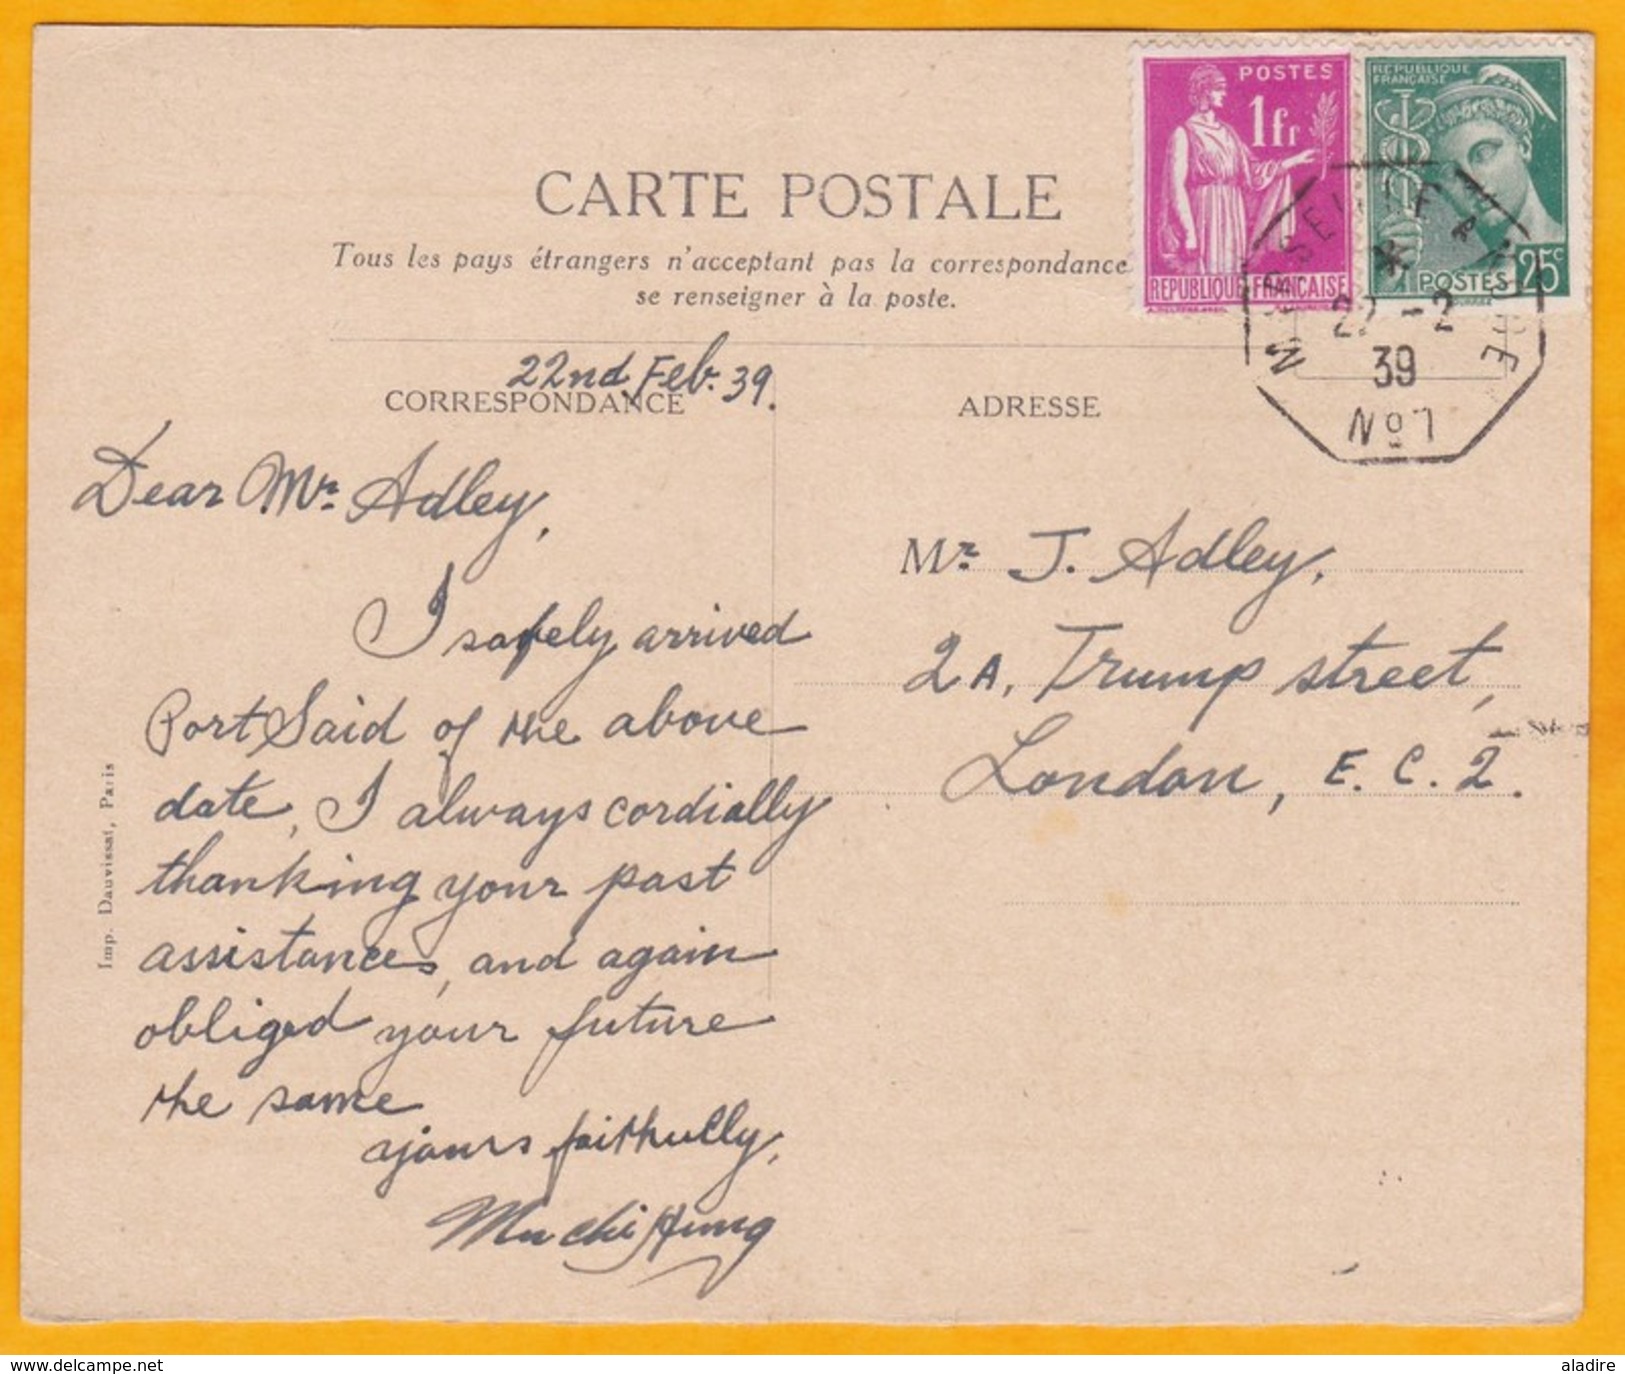 CARTE POSTALE
Tous les pays étrangers n'acceptant pas la correspondance
se renseigner à la poste.
POSTES
1fr
REPUBLIQUE FRANÇAISE
REPUBLIQUE
FRANÇAISE
POSTES 25c
MARSEILLE A
22 -2
39
No 1
CORRESPONDANCE
ADRESSE
22nd, Feb. 39.
Dear Mr. Adley,
I safely arrived
Port Said of the above
date, I always cordially
thanking your past
assistances, and again
obliged your future
the same
yours faithfully,
Mu Chi Hung
Mr. J. Adley,
2A, Trump street,
London, E.C.2.
Imp. Dauvissat, Paris
delcampe.net
aladire